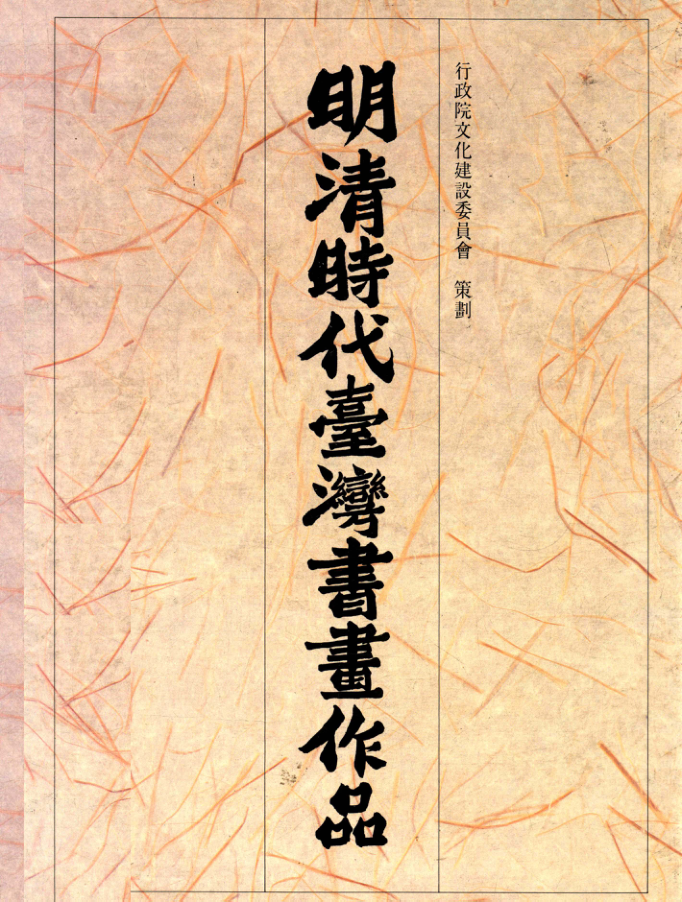 行政院文化建設委員會 策劃
明清時代臺灣書畫作品